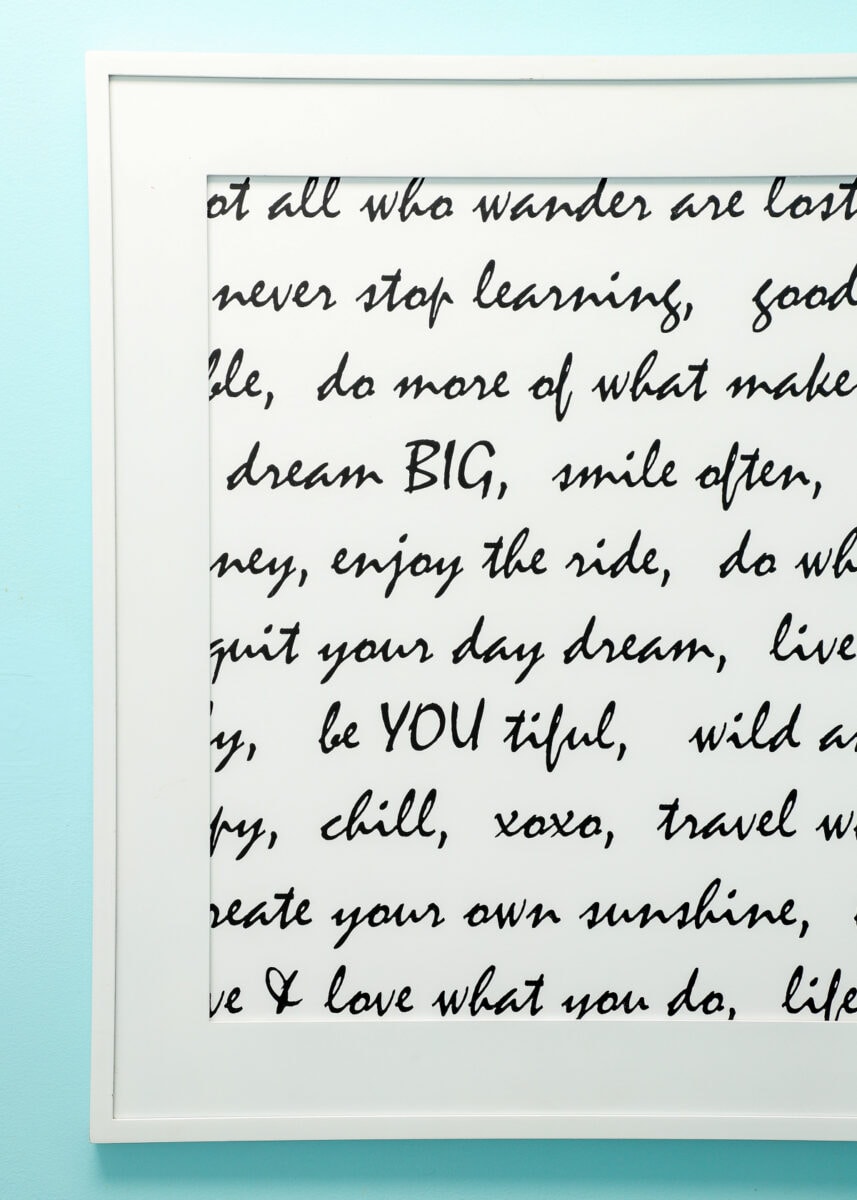 ot all who wander are lost
never stop learning, good
ble, do more of what make
dream BIG, smile often,
ney, enjoy the ride, do wh
quit your day dream, live
y, be YOU tiful, wild a
py, chill, xoxo, travel w
reate your own sunshine,
ve & love what you do, life